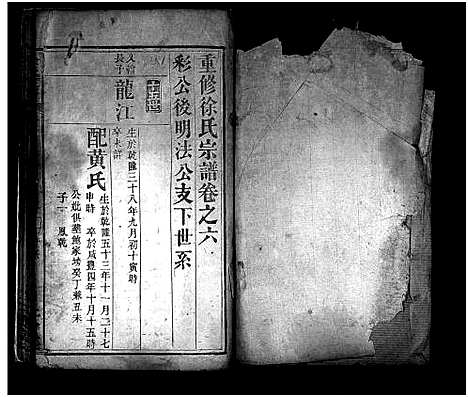 重修徐氏宗譜卷之六
彩公後明法公支下世系
文
長子
龍江
生於乾隆三十八年九月初十寅時
卒未詳
配黃氏
生於乾隆五十三年十一月二十七
申時 卒於咸豐四年十月十五時
公妣俱葬鮑家塝癸丁兼丑未
子一 鳳乾